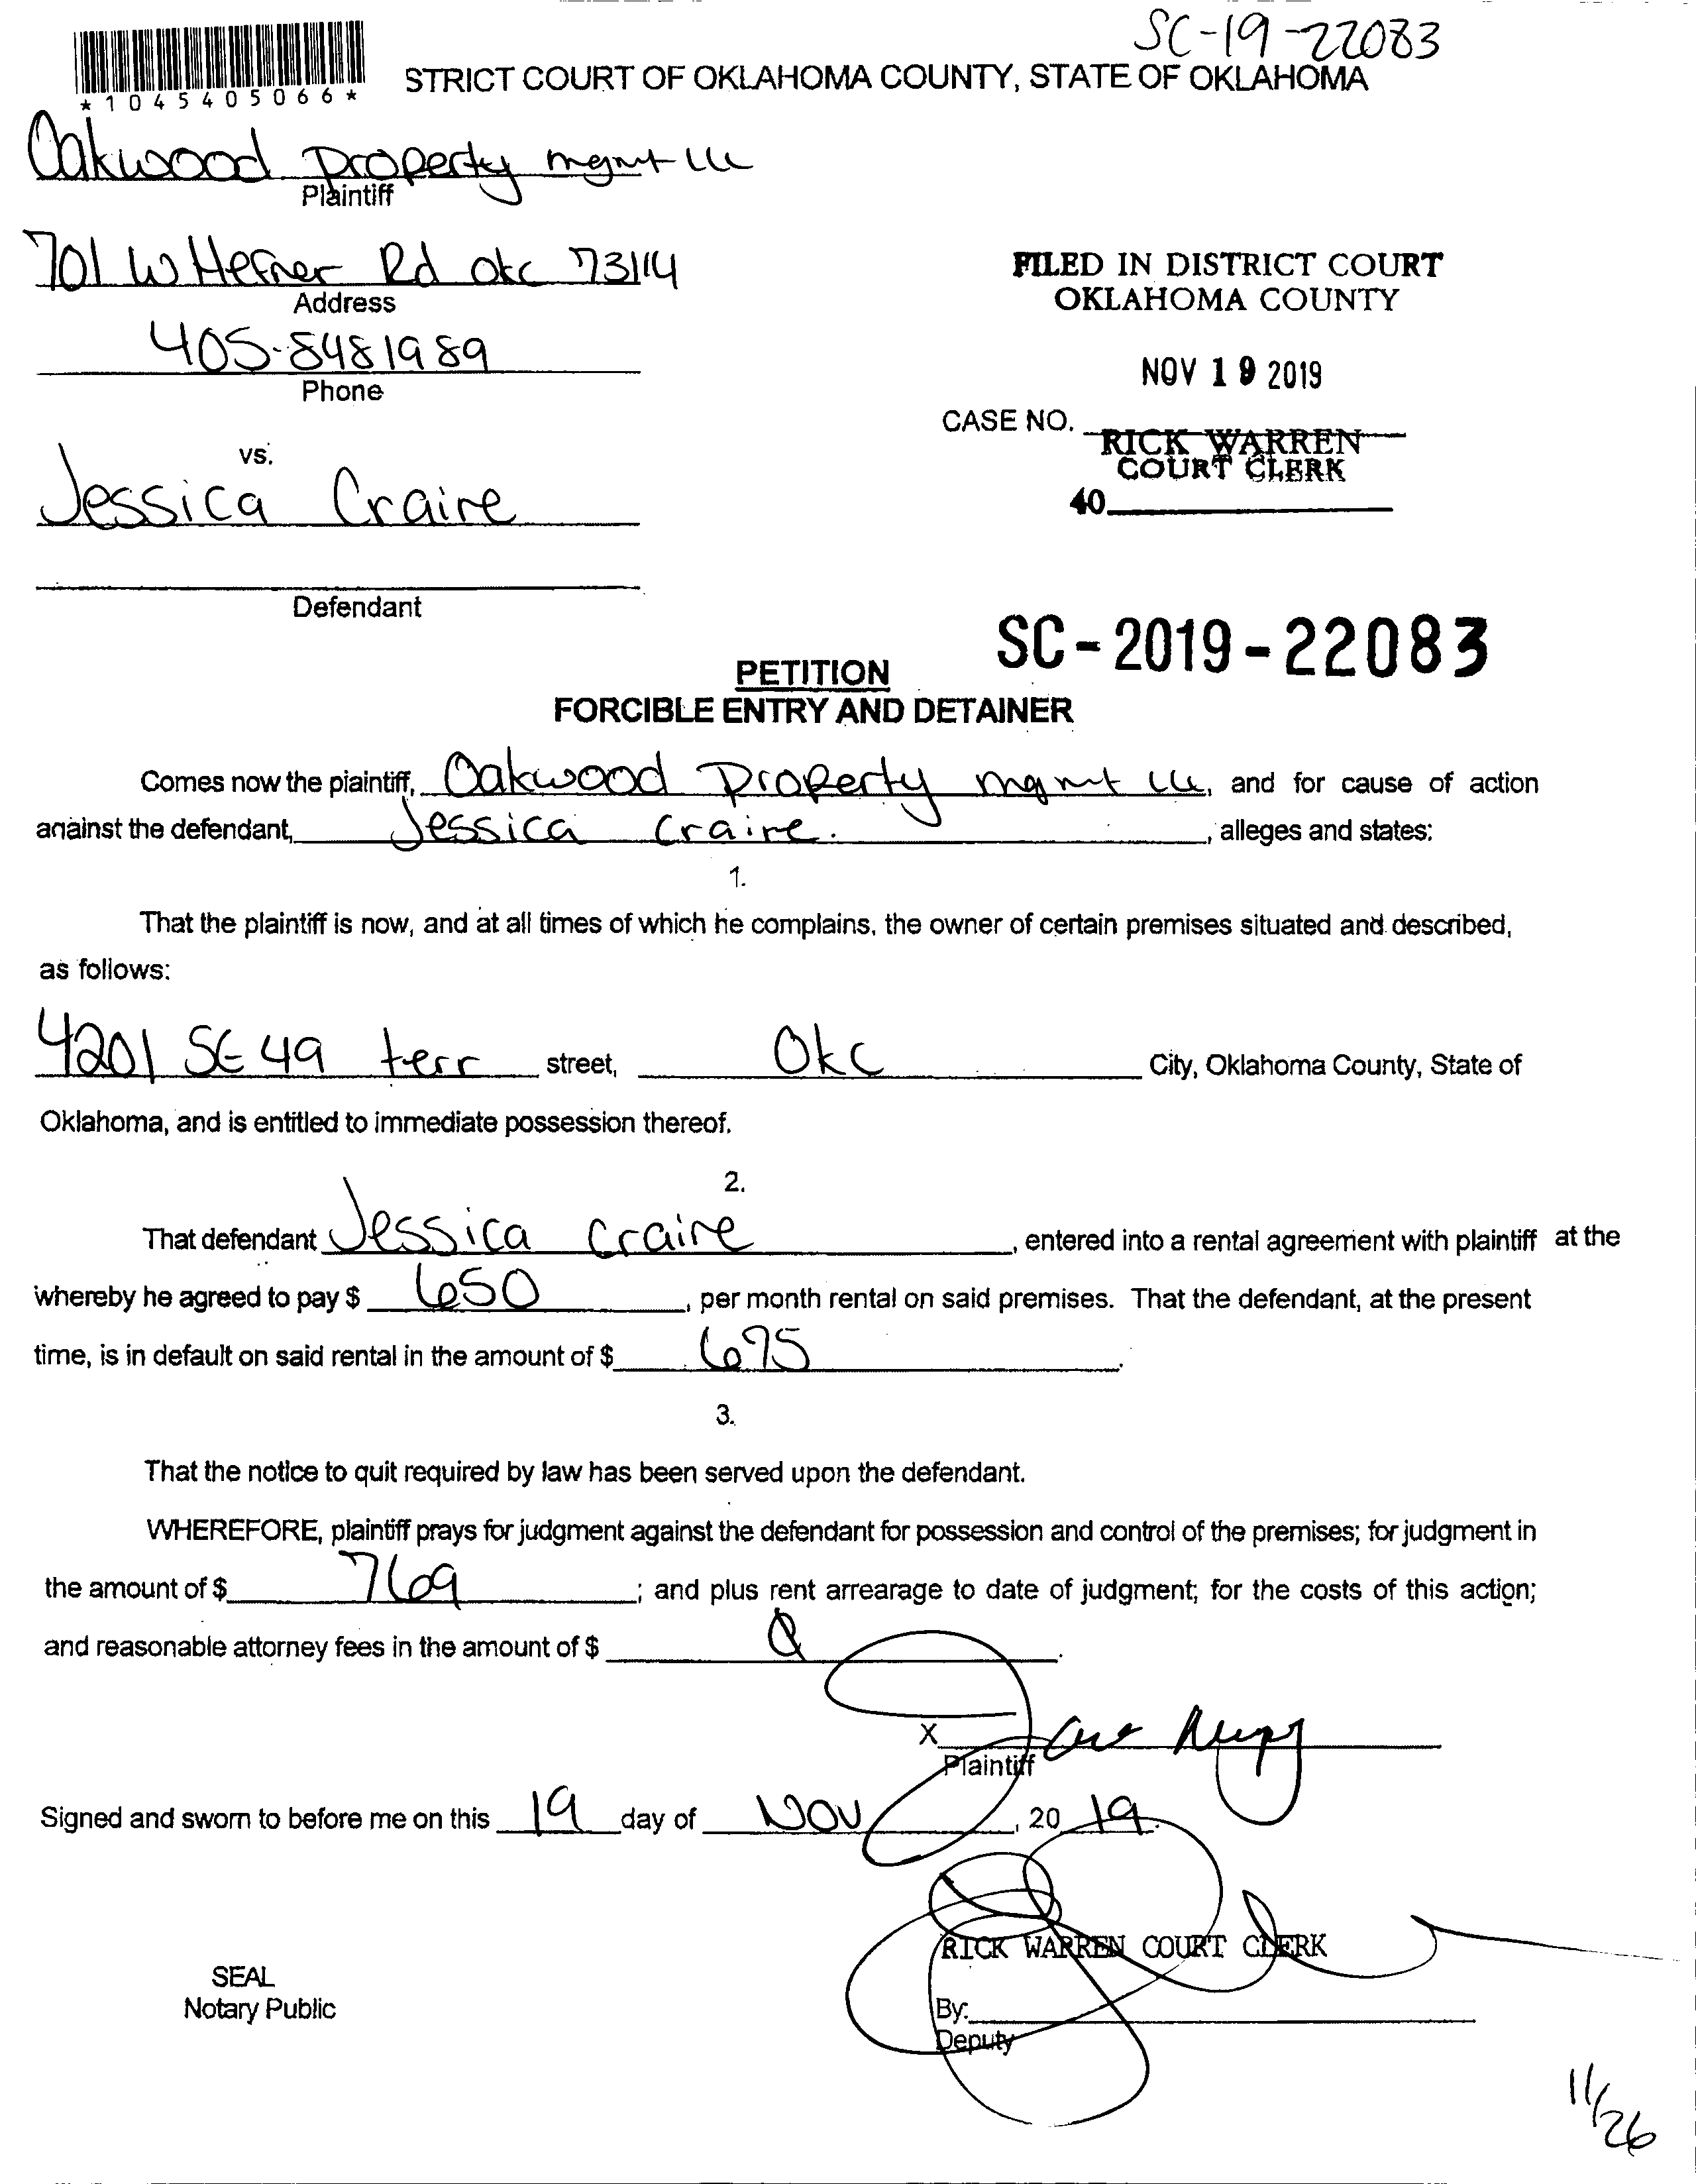 SC-19-22083
*1045405066*
STRICT COURT OF OKLAHOMA COUNTY, STATE OF OKLAHOMA
Oakwood Property mgmt LLC
Plaintiff
701 W Hefner Rd okc 73114
Address
405-8481989
Phone
FILED IN DISTRICT COURT
OKLAHOMA COUNTY
NOV 19 2019
CASE NO.
RICK WARREN
COURT CLERK
40
vs.
Jessica Craire
Defendant
SC-2019-22083
PETITION
FORCIBLE ENTRY AND DETAINER
Comes now the plaintiff, Oakwood Property mgmt LLC, and for cause of action
against the defendant, Jessica Craire. , alleges and states:
1.
That the plaintiff is now, and at all times of which he complains, the owner of certain premises situated and described,
as follows:
4201 SE 49 terr street, Okc City, Oklahoma County, State of
Oklahoma, and is entitled to immediate possession thereof.
2.
That defendant Jessica craire , entered into a rental agreement with plaintiff at the
whereby he agreed to pay $ 650 , per month rental on said premises. That the defendant, at the present
time, is in default on said rental in the amount of $ 695 .
3.
That the notice to quit required by law has been served upon the defendant.
WHEREFORE, plaintiff prays for judgment against the defendant for possession and control of the premises; for judgment in
the amount of $ 769 ; and plus rent arrearage to date of judgment; for the costs of this action;
and reasonable attorney fees in the amount of $ .
X
Plaintiff
Signed and sworn to before me on this 19 day of Nov , 20 19.
RICK WARREN COURT CLERK
SEAL
Notary Public
By:
Deputy
11/26